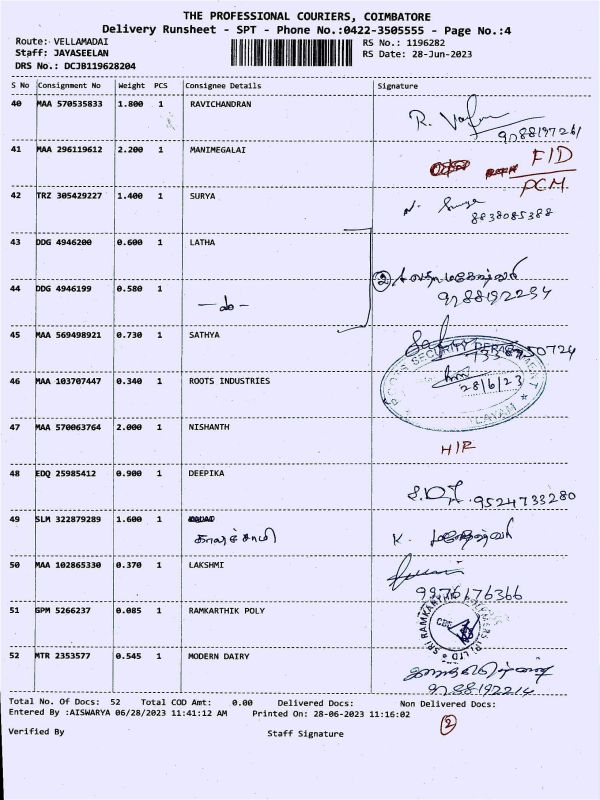 THE PROFESSIONAL COURIERS, COIMBATORE
Delivery Runsheet - SPT - Phone No.:0422-3505555 - Page No.:4
Route: VELLAMADAI
Staff: JAYASEELAN
DRS No.: DCJB119628204
RS No.: 1196282
RS Date: 28-Jun-2023
S No Consignment No Weight PCS Consignee Details Signature
40 MAA 570535833 1.800 1 RAVICHANDRAN
9788197261
41 MAA 296119612 2.200 1 MANIMEGALAI FID
PCM.
42 TRZ 305429227 1.400 1 SURYA
8838085388
43 DDG 4946200 0.600 1 LATHA
44 DDG 4946199 0.580 1
② 9788192294
45 MAA 569498921 0.730 1 SATHYA
46 MAA 103707447 0.340 1 ROOTS INDUSTRIES
ROOTS SECURITY DEPARTMENT
28/6/23
47 MAA 570063764 2.000 1 NISHANTH
H/R
48 EDQ 25985412 0.900 1 DEEPIKA
9524733280
49 SLM 322879289 1.600 1
K.
50 MAA 102865330 0.370 1 LAKSHMI
9976176366
51 GPM 5266237 0.085 1 RAMKARTHIK POLY
52 MTR 2353577 0.545 1 MODERN DAIRY
9788192214
Total No. Of Docs: 52 Total COD Amt: 0.00 Delivered Docs: Non Delivered Docs:
Entered By :AISWARYA 06/28/2023 11:41:12 AM Printed On: 28-06-2023 11:16:02
②
Verified By Staff Signature